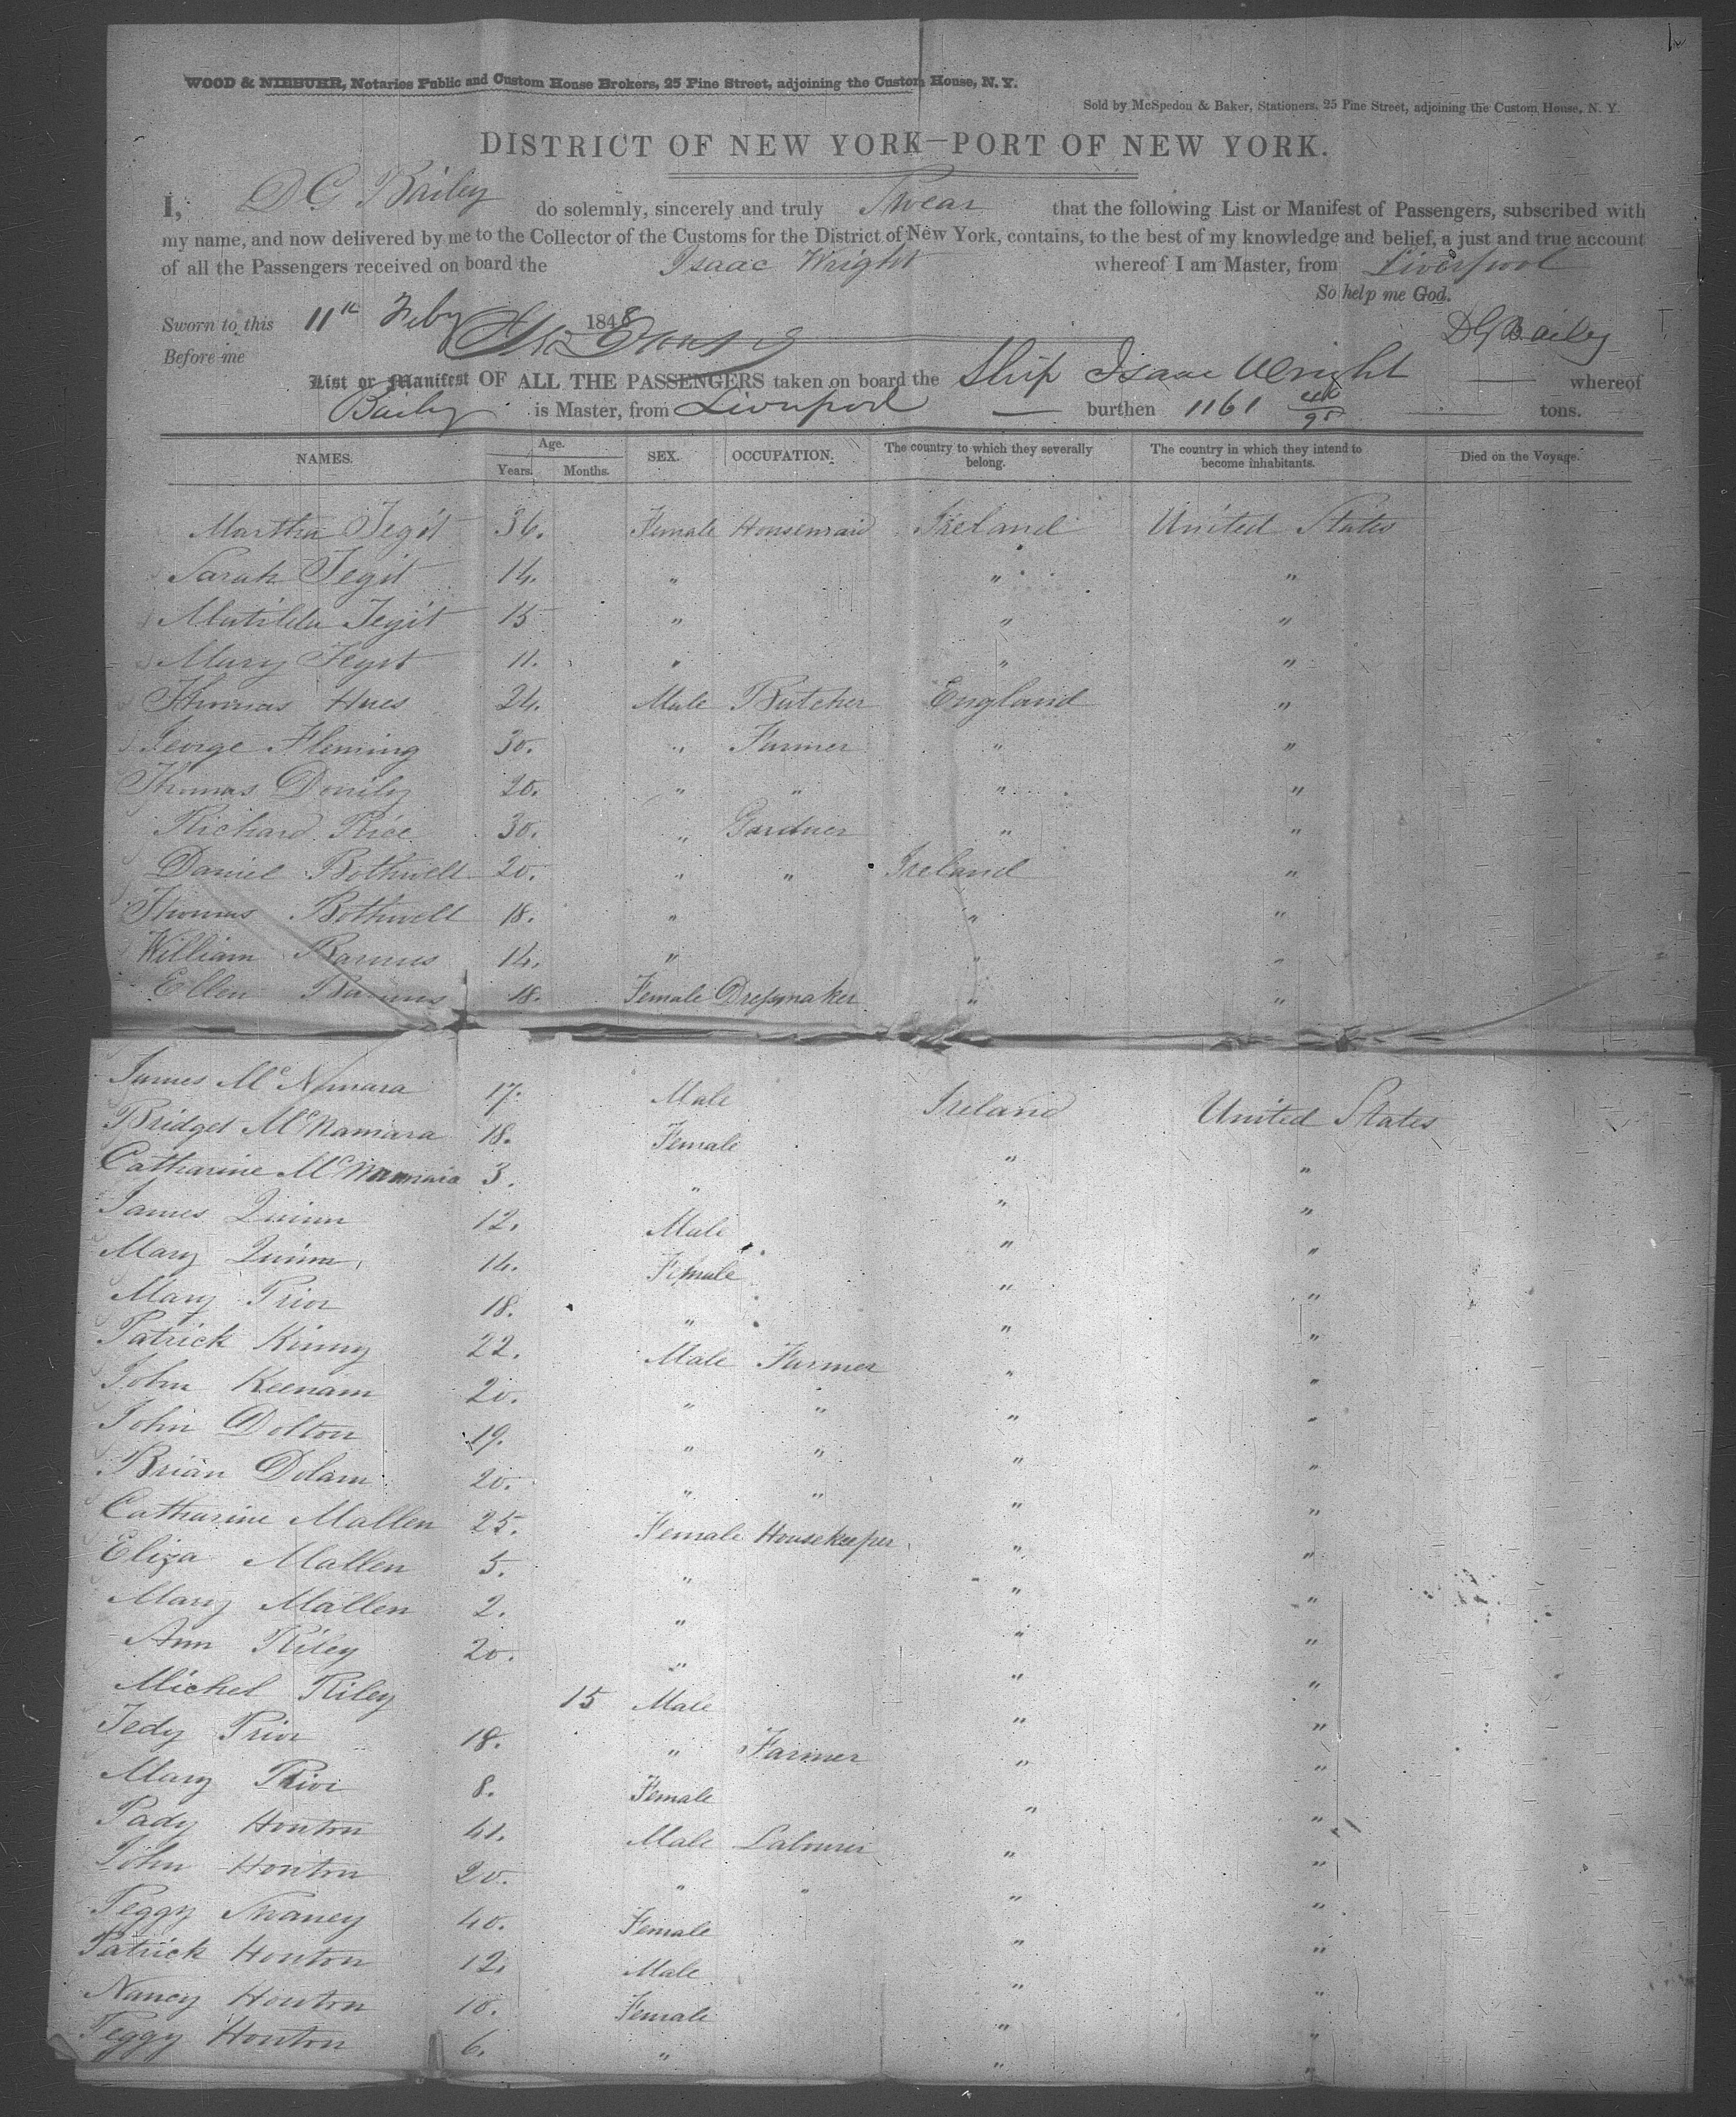 WOOD & NIEBUHR, Notaries Public and Custom House Brokers, 25 Pine Street, adjoining the Custom House, N. Y.
Sold by McSpedon & Baker, Stationers, 25 Pine Street, adjoining the Custom House, N. Y.
DISTRICT OF NEW YORK—PORT OF NEW YORK.
I, D G Bailey do solemnly, sincerely and truly Swear that the following List or Manifest of Passengers, subscribed with
my name, and now delivered by me to the Collector of the Customs for the District of New York, contains, to the best of my knowledge and belief, a just and true account
of all the Passengers received on board the Isaac Wright whereof I am Master, from Liverpool
So help me God.
Sworn to this 11th Feby 1848
D G Bailey
Before me
List or Manifest OF ALL THE PASSENGERS taken on board the Ship Isaac Wright whereof
Bailey is Master, from Liverpool burthen 1161 tons.
NAMES. Age. Years. Months. SEX. OCCUPATION. The country to which they severally belong. The country in which they intend to become inhabitants. Died on the Voyage.
Martha Tegit 36. Female Housemaid Ireland United States
Sarah Tegit 14. " " "
Matilda Tegit 15 " " "
Mary Tegit 11. " " "
Thomas Hues 24. Male Butcher England "
George Fleming 30. " Farmer " "
Thomas 20. " " " "
Richard Rice 30. " Gardner " "
Daniel Bothwell 20. " " Ireland "
Thomas Bothwell 18. " " "
William Barnus 14. " " "
Ellen Barnus 18. Female Dressmaker " "
James McNamara 17. Male Ireland United States
Bridget McNamara 18. Female " "
Catharine McNamara 3. " " "
James Quinn 12. Male " "
Mary Quinn 14. Female " "
Mary Prior 18. " " "
Patrick Kinny 22. Male Farmer " "
John Keenam 20. " " " "
John Dolton 19. " " " "
Brian Dolam 20. " " " "
Catharine Mallen 25. Female Housekeeper " "
Eliza Mallen 5. " " "
Mary Mallen 2. " " "
Ann Riley 20. " " "
Michel Riley 15 Male " "
Tedy Prior 18. " Farmer " "
Mary Prior 8. Female " "
Pady Honton 41. Male Labourer " "
John Honton 20. " " " "
Peggy 40. Female " "
Patrick Honton 12. Male " "
Nancy Honton 10. Female " "
Peggy Honton 6. " " "